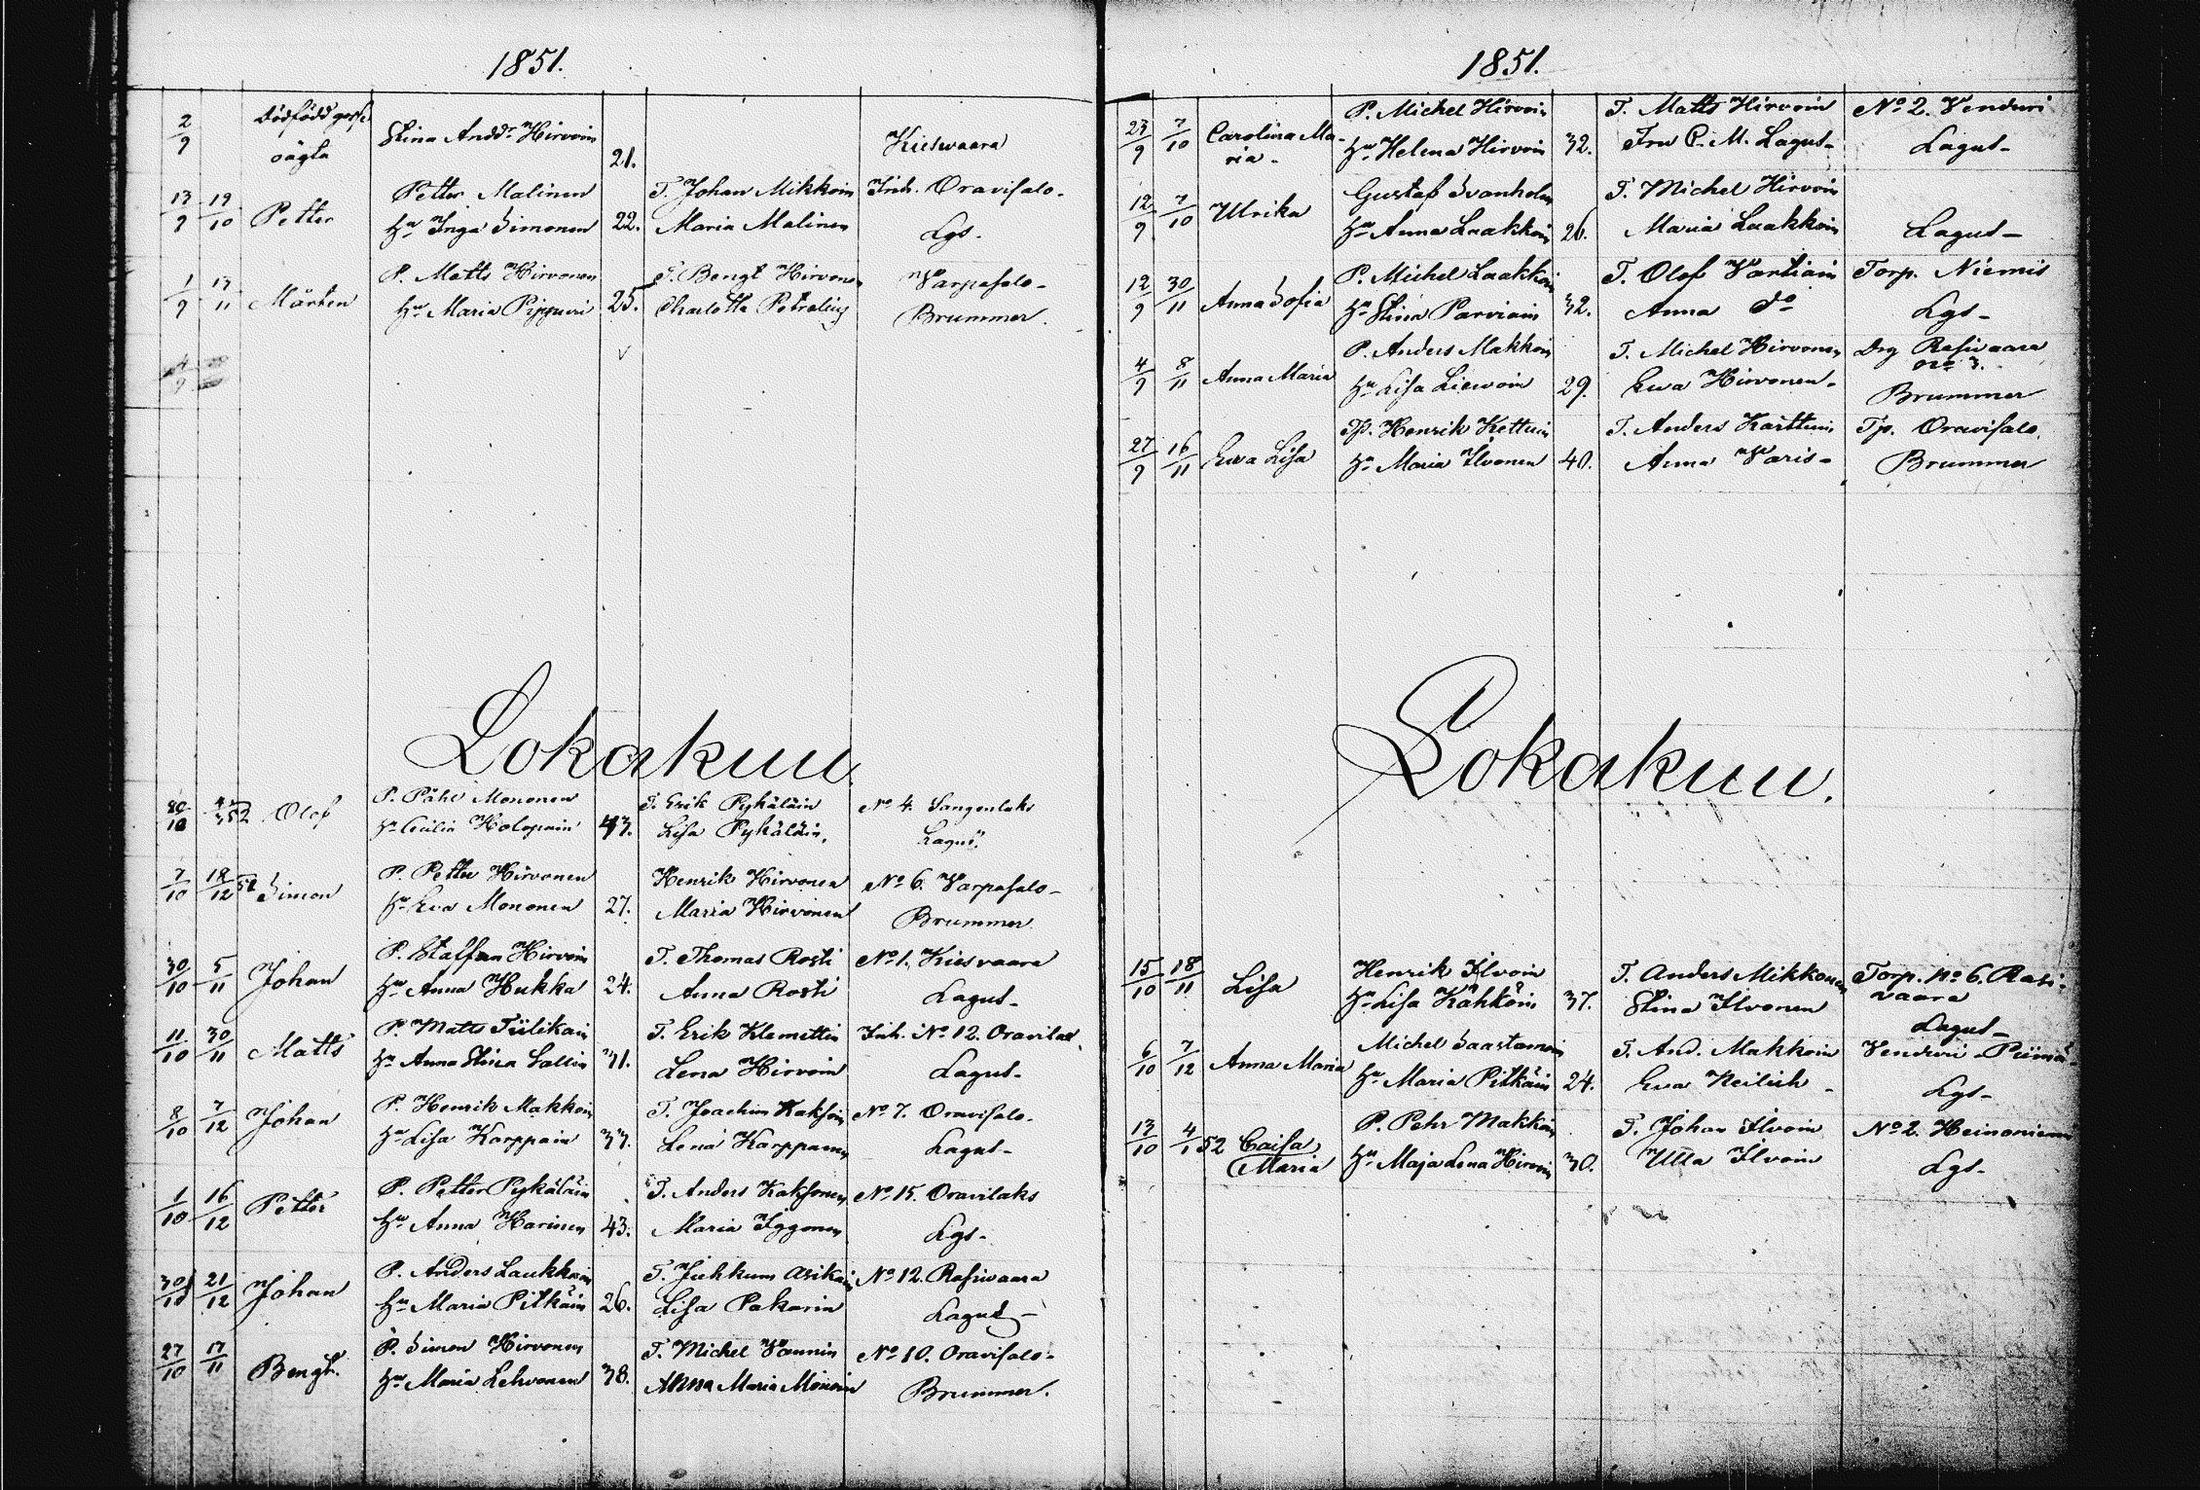 1851.
2/9 Dödfödd gosse Stina Andd:r Hirvoin
oägta 21. Kieswaara
13/9 19/10 Petter Petter Malinen T. Johan Mikkoin Inh. Oravisalo-
Hu Inga Simonen 22. Maria Malinen Lgs.
1/9 13/11 Mårten P. Matts Hirvonen T. Bengt Hirvonen Warpasalo-
Hu Maria Pippuri 25. Charlotta Petrelius Brummer.
Lokakuu
Olof P. Påhl Mononen T. Erik Pykäläin No 4. Sangenlaks
Hu Cecilia Holopain 43. Lisa Pykäläin, Lagus.
7/10 18/12 52 Simon P. Petter Hirvonen Henrik Hirvonen No 6. Varpasalo-
Hu Eva Mononen 27. Maria Hirvonen Brummer.
30/10 5/11 Johan P. Staffan Hirvoin T. Thomas Rosti No 1. Kiesvaara
Hu Anna Hukka 24. Anna Rosti Lagus-
11/10 30/11 Matts P. Matts Tiilikain T. Erik Klemettin Inh. No 12. Oravilax
Hu Anna Stina Sallin 31. Lena Hirvoin Lagus-
8/10 7/12 Johan P. Henrik Makkoin T. Joachim Kaksoin No 7. Oravisalo-
Hu Lisa Karppain 33. Lena Karppanen Lagus-
1/10 16/12 Petter P. Petter Pykäläin T. Anders Kaksonen No 15. Oravilaks
Hu Anna Harinen 43. Maria Iggonen Lgs-
30/10 21/12 Johan P. Anders Laukkain T. Juhkum Asikain No 12. Rasiwaara
Hu Maria Pitkäin 26. Lisa Pakarin Lagus-
27/10 17/11 Bengt. P. Simon Hirvonen T. Michel Vannin No 10. Oravisalo-
Hu Maria Lehvonen 38. Anna Maria Monoin Brummer.
1851.
23/9 7/10 Carolina Ma- P. Michel Hirvoin T. Matts Hirvoin No 2. Venduri
ria- Hu Helena Hirvoin 32. Fru C. M. Lagus- Lagus-
12/9 7/10 Ulrika Gustaf Svanholm T. Michel Hirvoin
Hu Anna Laakkoin 26. Maria Laakkoin Lagus-
12/9 30/11 Anna Sofia P. Michel Laakkoin T. Olof Vartiain Torp. Niemis
Hu Stina Parviain 32. Anna do Lgs-
4/9 8/11 Anna Maria P. Anders Makkoin T. Michel Hirvonen Drg Rasivaara
no 3.
Hu Lisa Liewoin 29. Ewa Hirvonen- Brummer
27/9 16/11 Ewa Lisa Tp. Henrik Kettuin T. Anders Karttuin Tp. Oravisalo.
Hu Maria Ilvonen 40. Anna Varis- Brummer
Lokakuu.
15/10 18/11 Lisa Henrik Ilvoin T. Anders Mikkonen Torp. No 6. Rasi-
Hu Lisa Kähköin 37. Stina Ilvonen vaara
Lagus-
6/10 7/12 Anna Maria Michel Saastamoin T. And. Makkoin Venduri
Hu Maria Pitkäin 24. Ewa Lgs-
13/10 4/1 52 Caisa P. Pehr Makkoin T. Johan Ilvoin No 2. Heinoniemi
Maria Hu Maja Lena Hirvoin 30. Ulla Ilvoin Lgs-